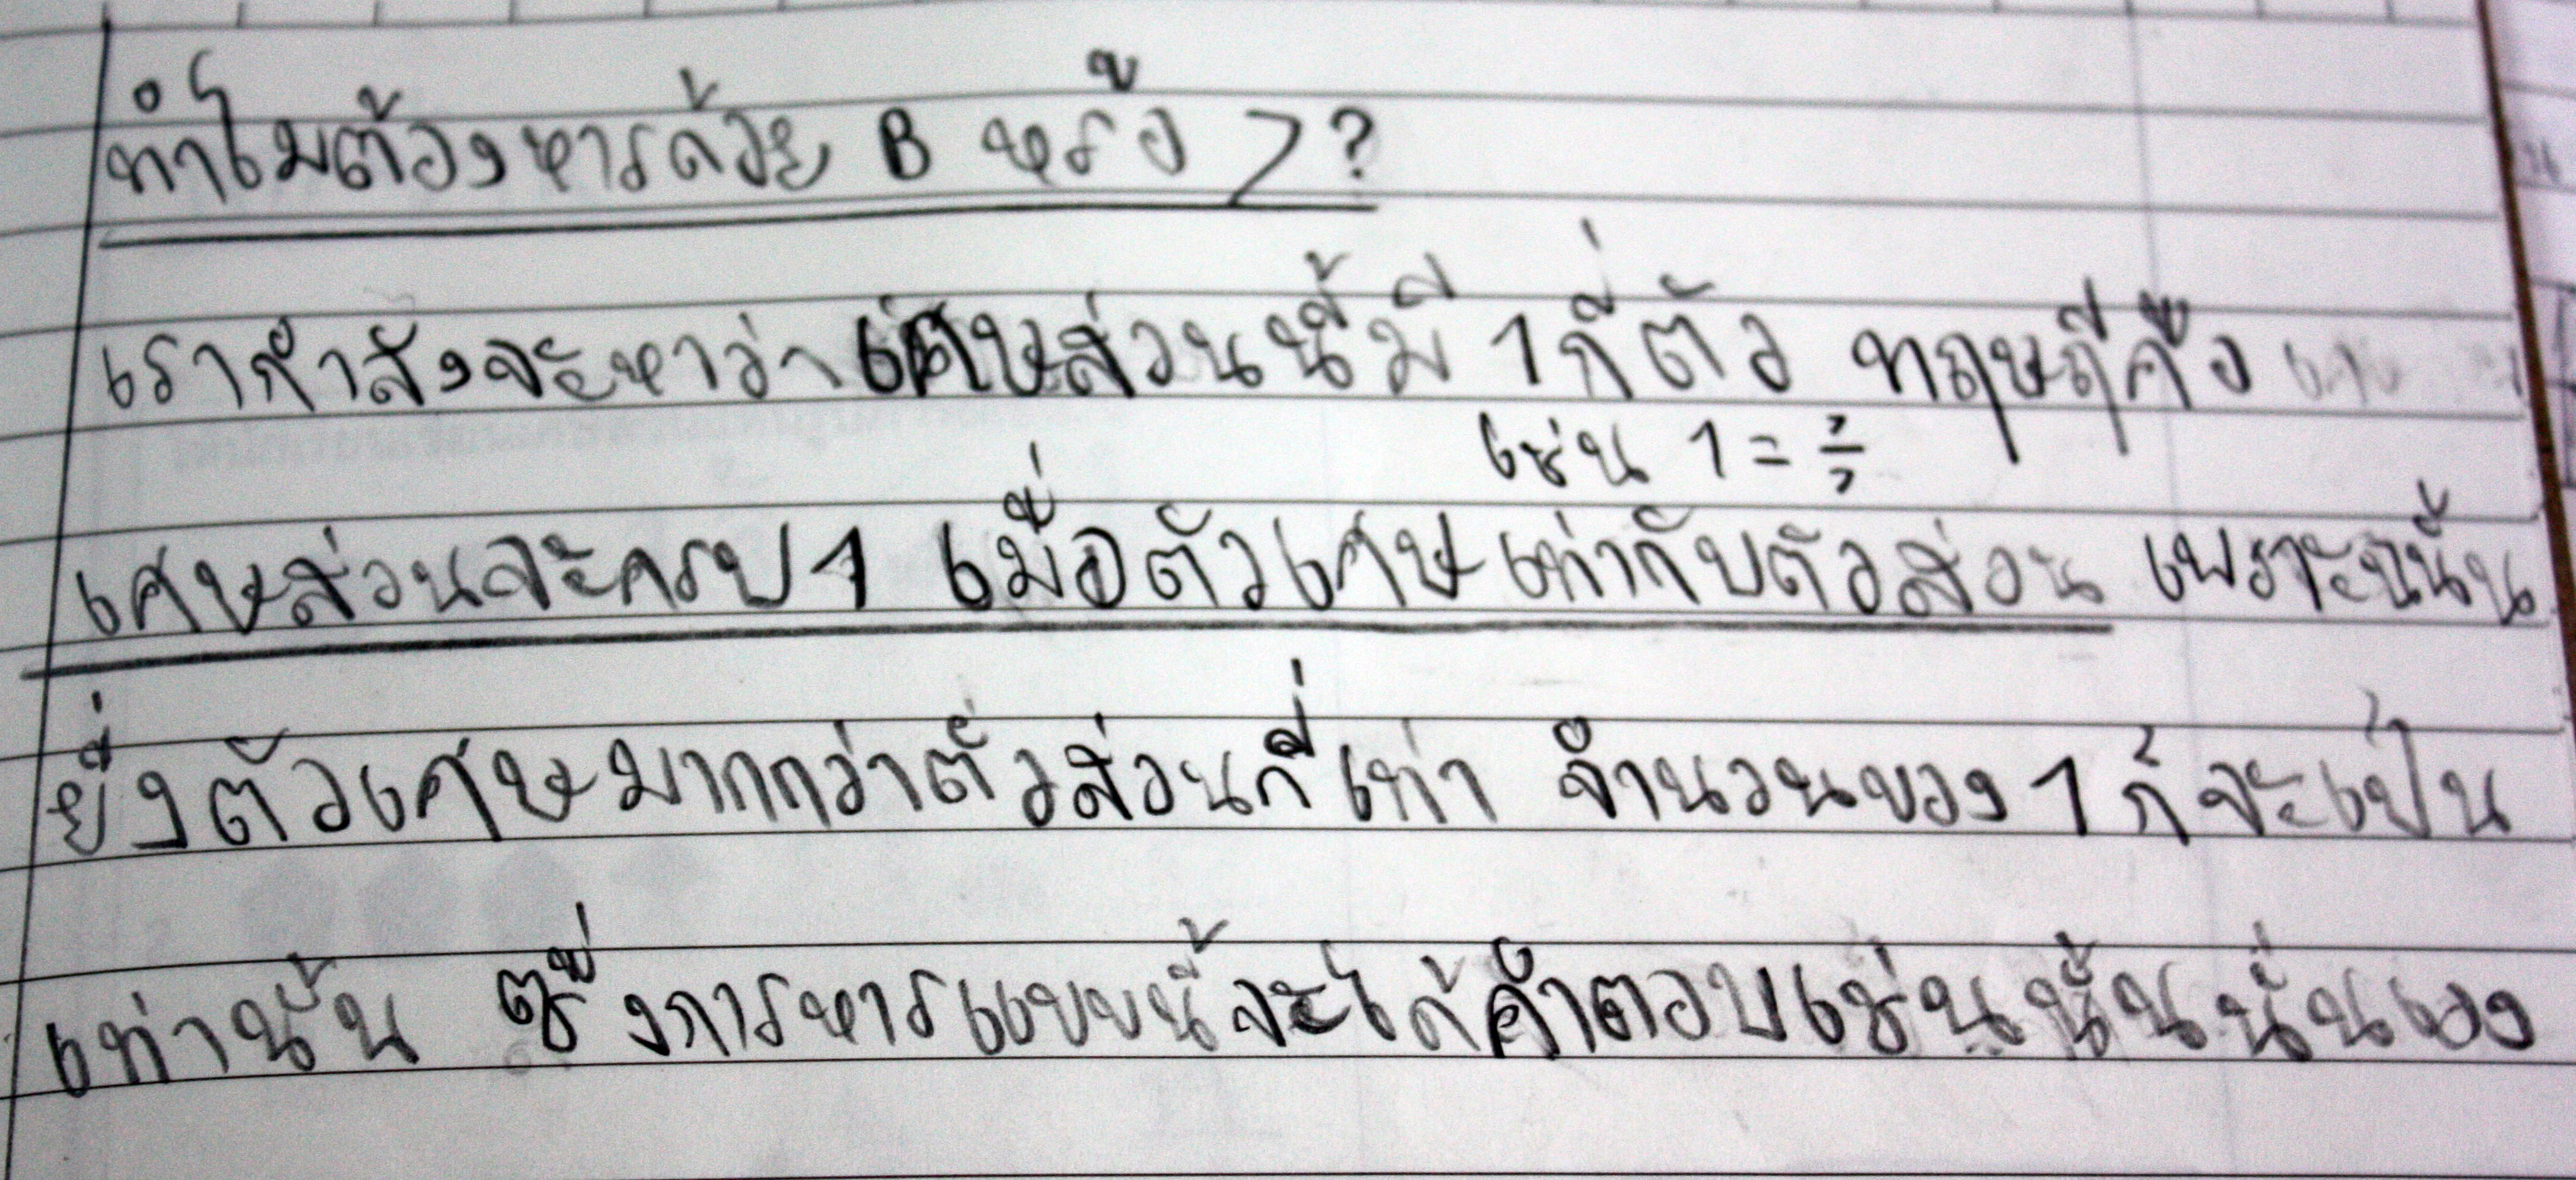 ทำไมต้องหารด้วย B หรือ 7 ?
เรากำลังจะหาว่าเศษส่วนนี้มี 1 กี่ตัว ทฤษฎีคือ
เช่น 1 = 7/7
เศษส่วนจะครบ 1 เมื่อตัวเศษเท่ากับตัวส่วน เพราะฉะนั้น
ยิ่งตัวเศษมากกว่าตัวส่วนกี่เท่า จำนวนของ 1 ก็จะเป็น
เท่านั้น ซึ่งการหารแบบนี้จะได้คำตอบเช่นนั้นนั่นเอง